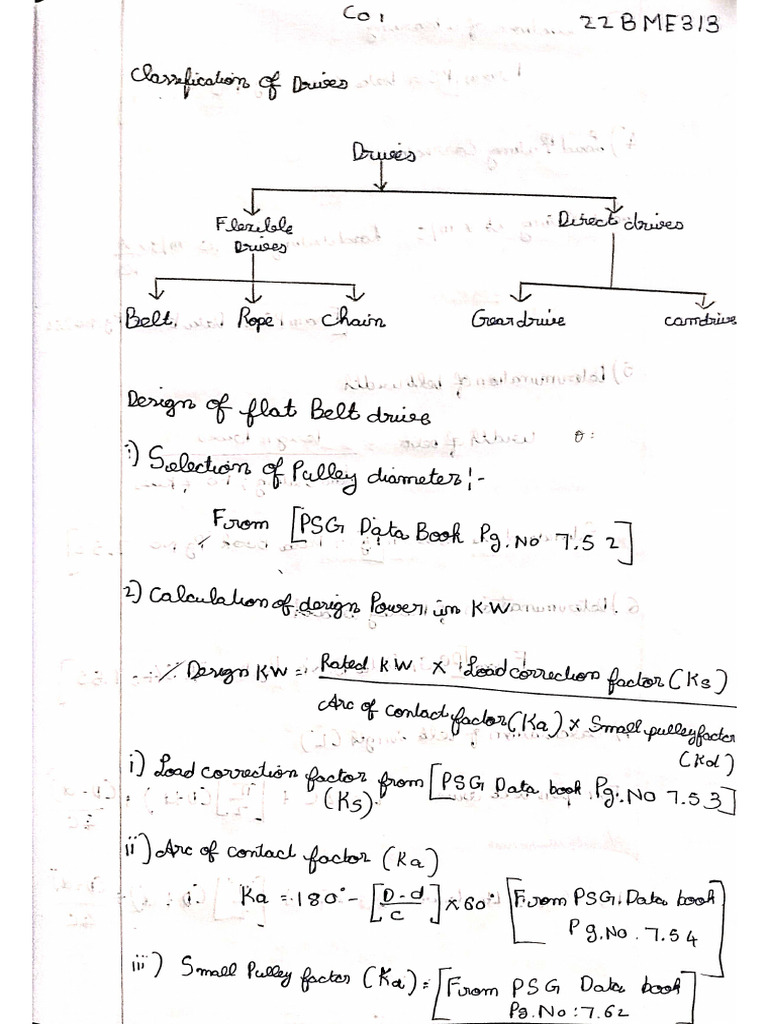 CO1
22BME313
Classification of Drives
Drives
Flexible Drives
Direct drives
Belt. Rope. Chain
Gear drive
camdrive
Design of flat Belt drive
θ:
i) Selection of Pulley diameter:-
From [PSG Data Book Pg.No 7.52]
2) Calculation of design Power in KW.
Design KW = Rated KW X Load correction factor (Ks)
Arc of contact factor (Ka) x Small pulley factor
(Kd)
i) Load correction factor from [PSG Data book Pg.NO 7.53]
(Ks).
ii) Arc of contact factor (Ka)
Ka = 180° - [D-d/C] x 60° [From PSG. Data book
Pg.No. 7.54
iii) Small Pulley factor (Kd) = [From PSG Data book
Pg.No: 7.62